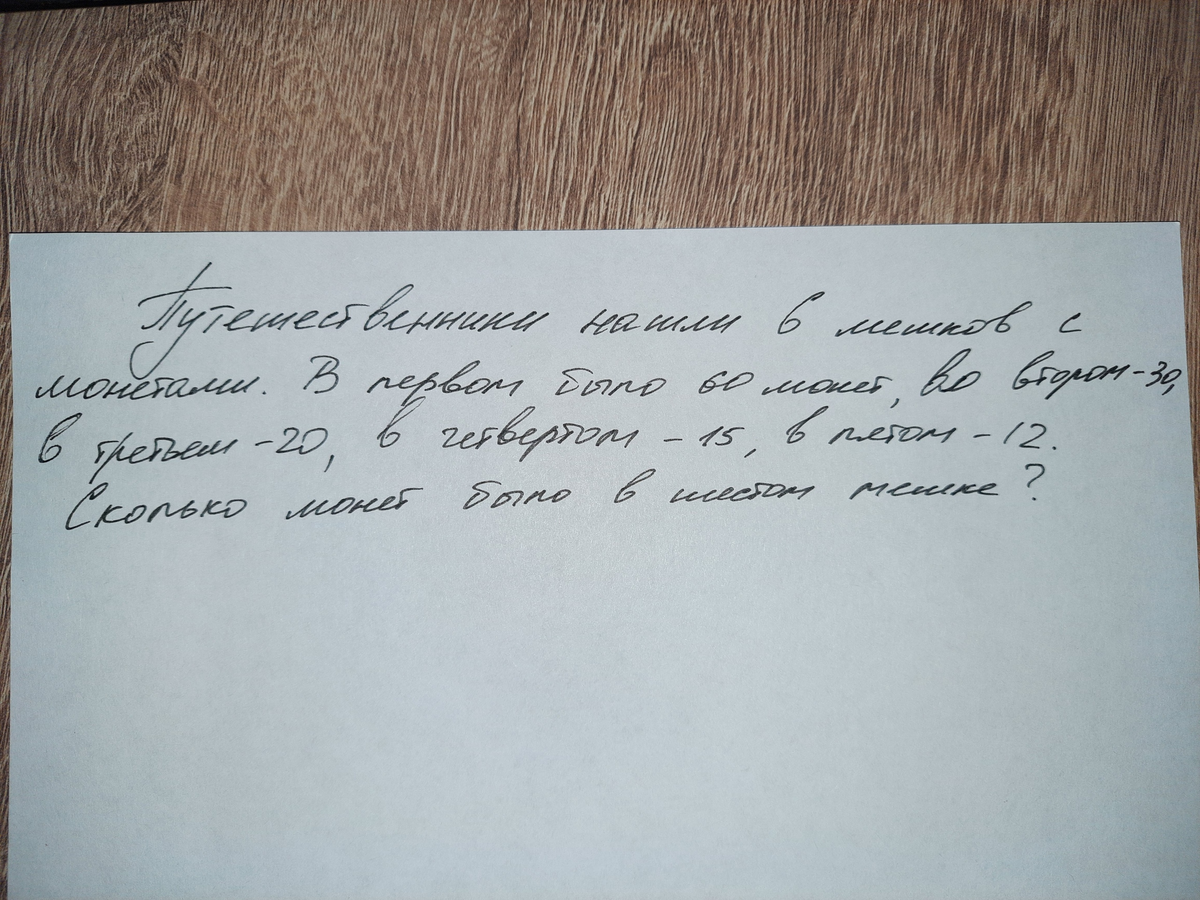 Путешественники нашли 6 мешков с
монетами. В первом было 60 монет, во втором-30,
в третьем-20, в четвертом-15, в пятом-12.
Сколько монет было в шестом мешке?